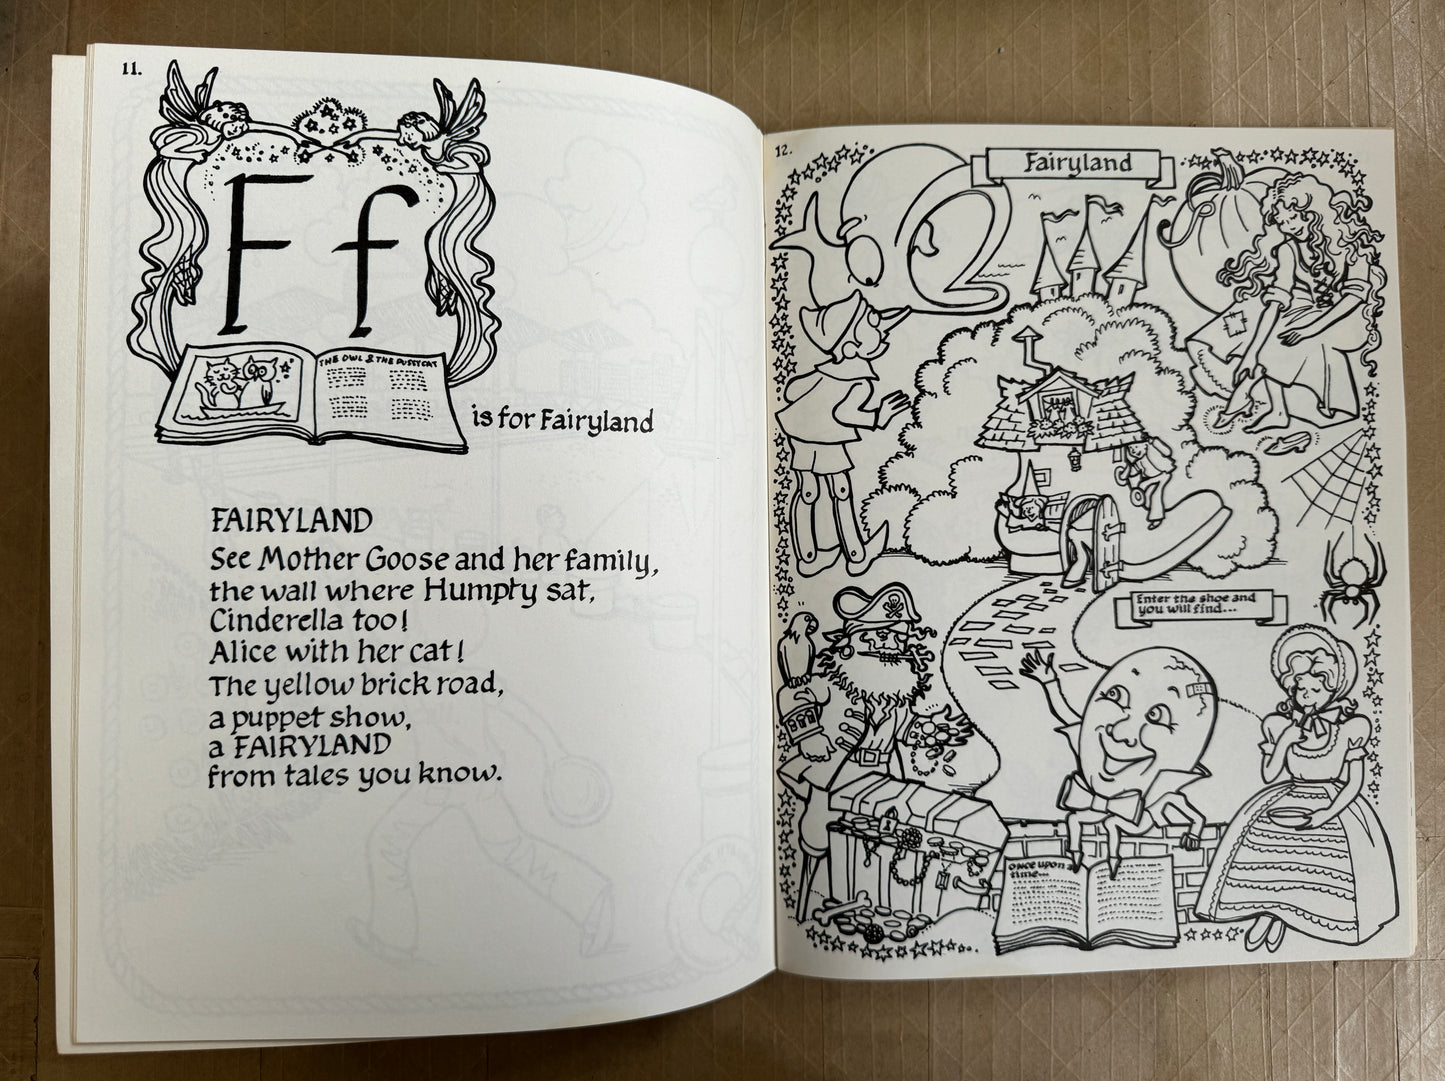 11.
F f
THE OWL & THE PUSSYCAT
is for Fairyland
FAIRYLAND
See Mother Goose and her family,
the wall where Humpty sat,
Cinderella too!
Alice with her cat!
The yellow brick road,
a puppet show,
a FAIRYLAND
from tales you know.
12.
Fairyland
Enter the shoe and
you will find...
Once upon a
time...